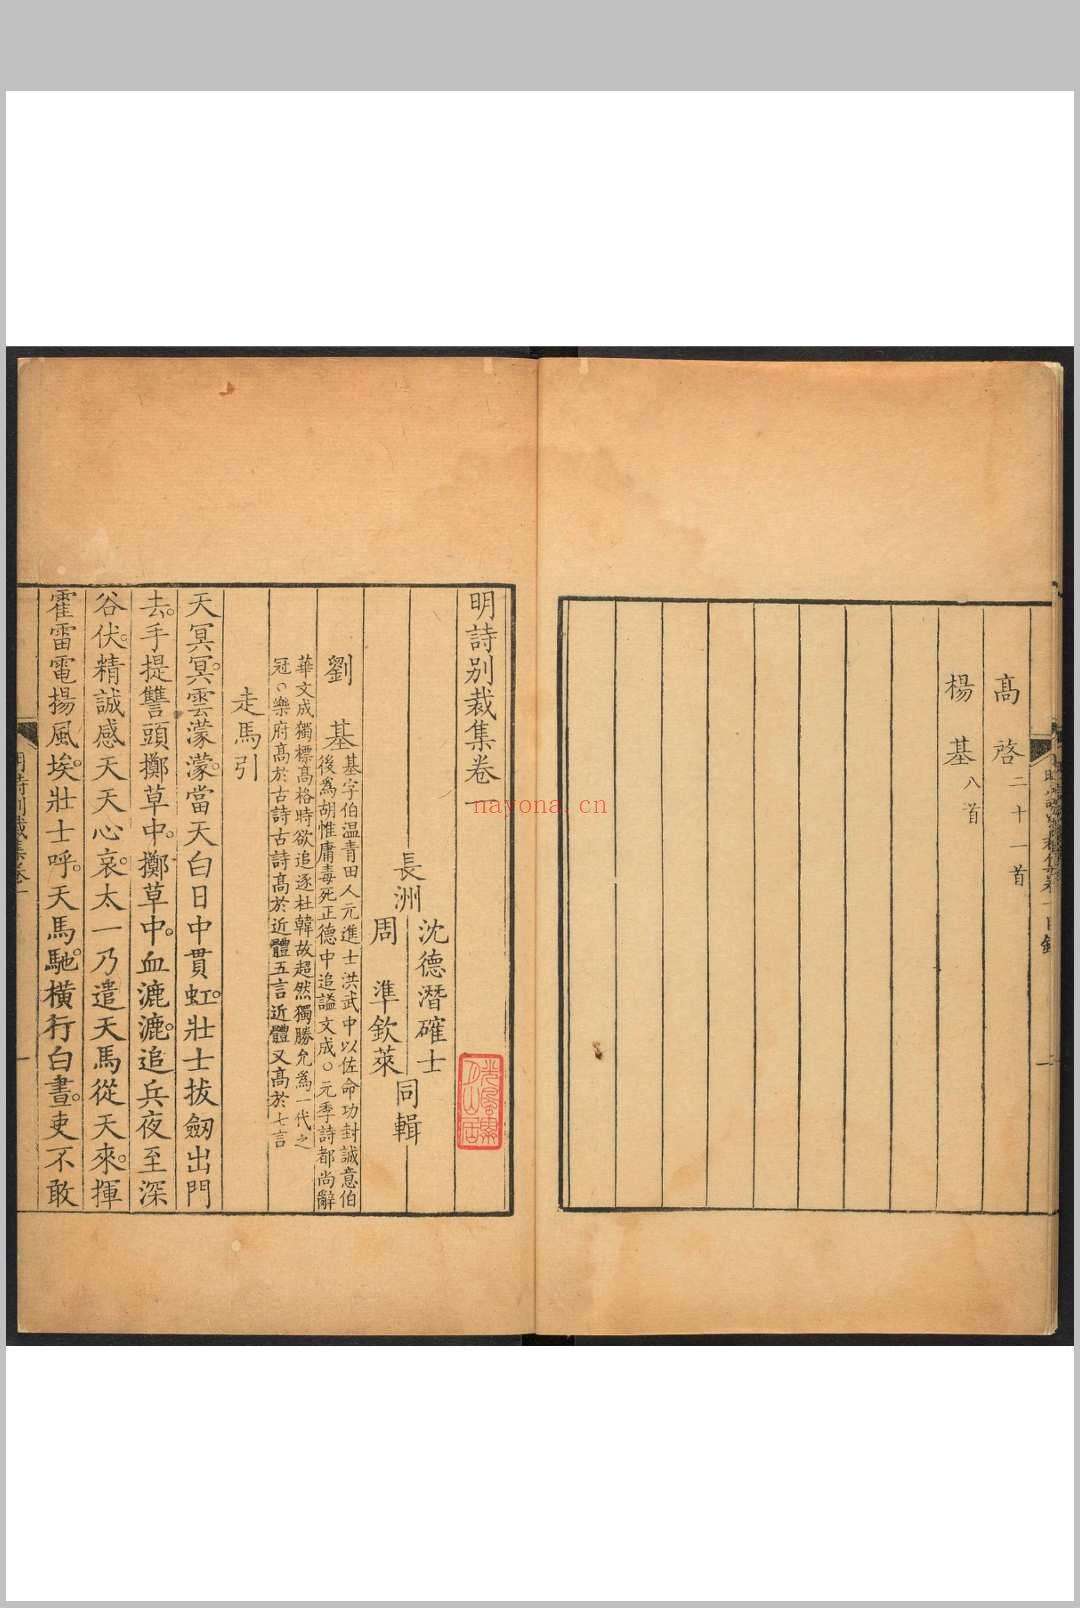 高啓二十一首
楊基八首
明詩別裁集卷一
長洲
沈德潛確士
周準欽萊
同輯
劉基
基字伯温青田人元進士洪武中以佐命功封誠意伯
後爲胡惟庸毒死正德中追謚文成○元季詩都尚辭
華文成獨標高格時欲追逐杜韓故超然獨勝允爲一代之
冠○樂府高於古詩古詩高於近體五言近體又高於七言
走馬引
天冥冥。雲濛濛。當天白日中貫虹。壯士拔劒出門
去。手提讐頭擲草中。擲草中。血漉漉。追兵夜至深
谷伏。精誠感天天心哀。太一乃遣天馬從天來。揮
霍雷電揚風埃。壯士呼。天馬馳。橫行白晝。吏不敢
明詩別裁集卷一
一
nayona.cn